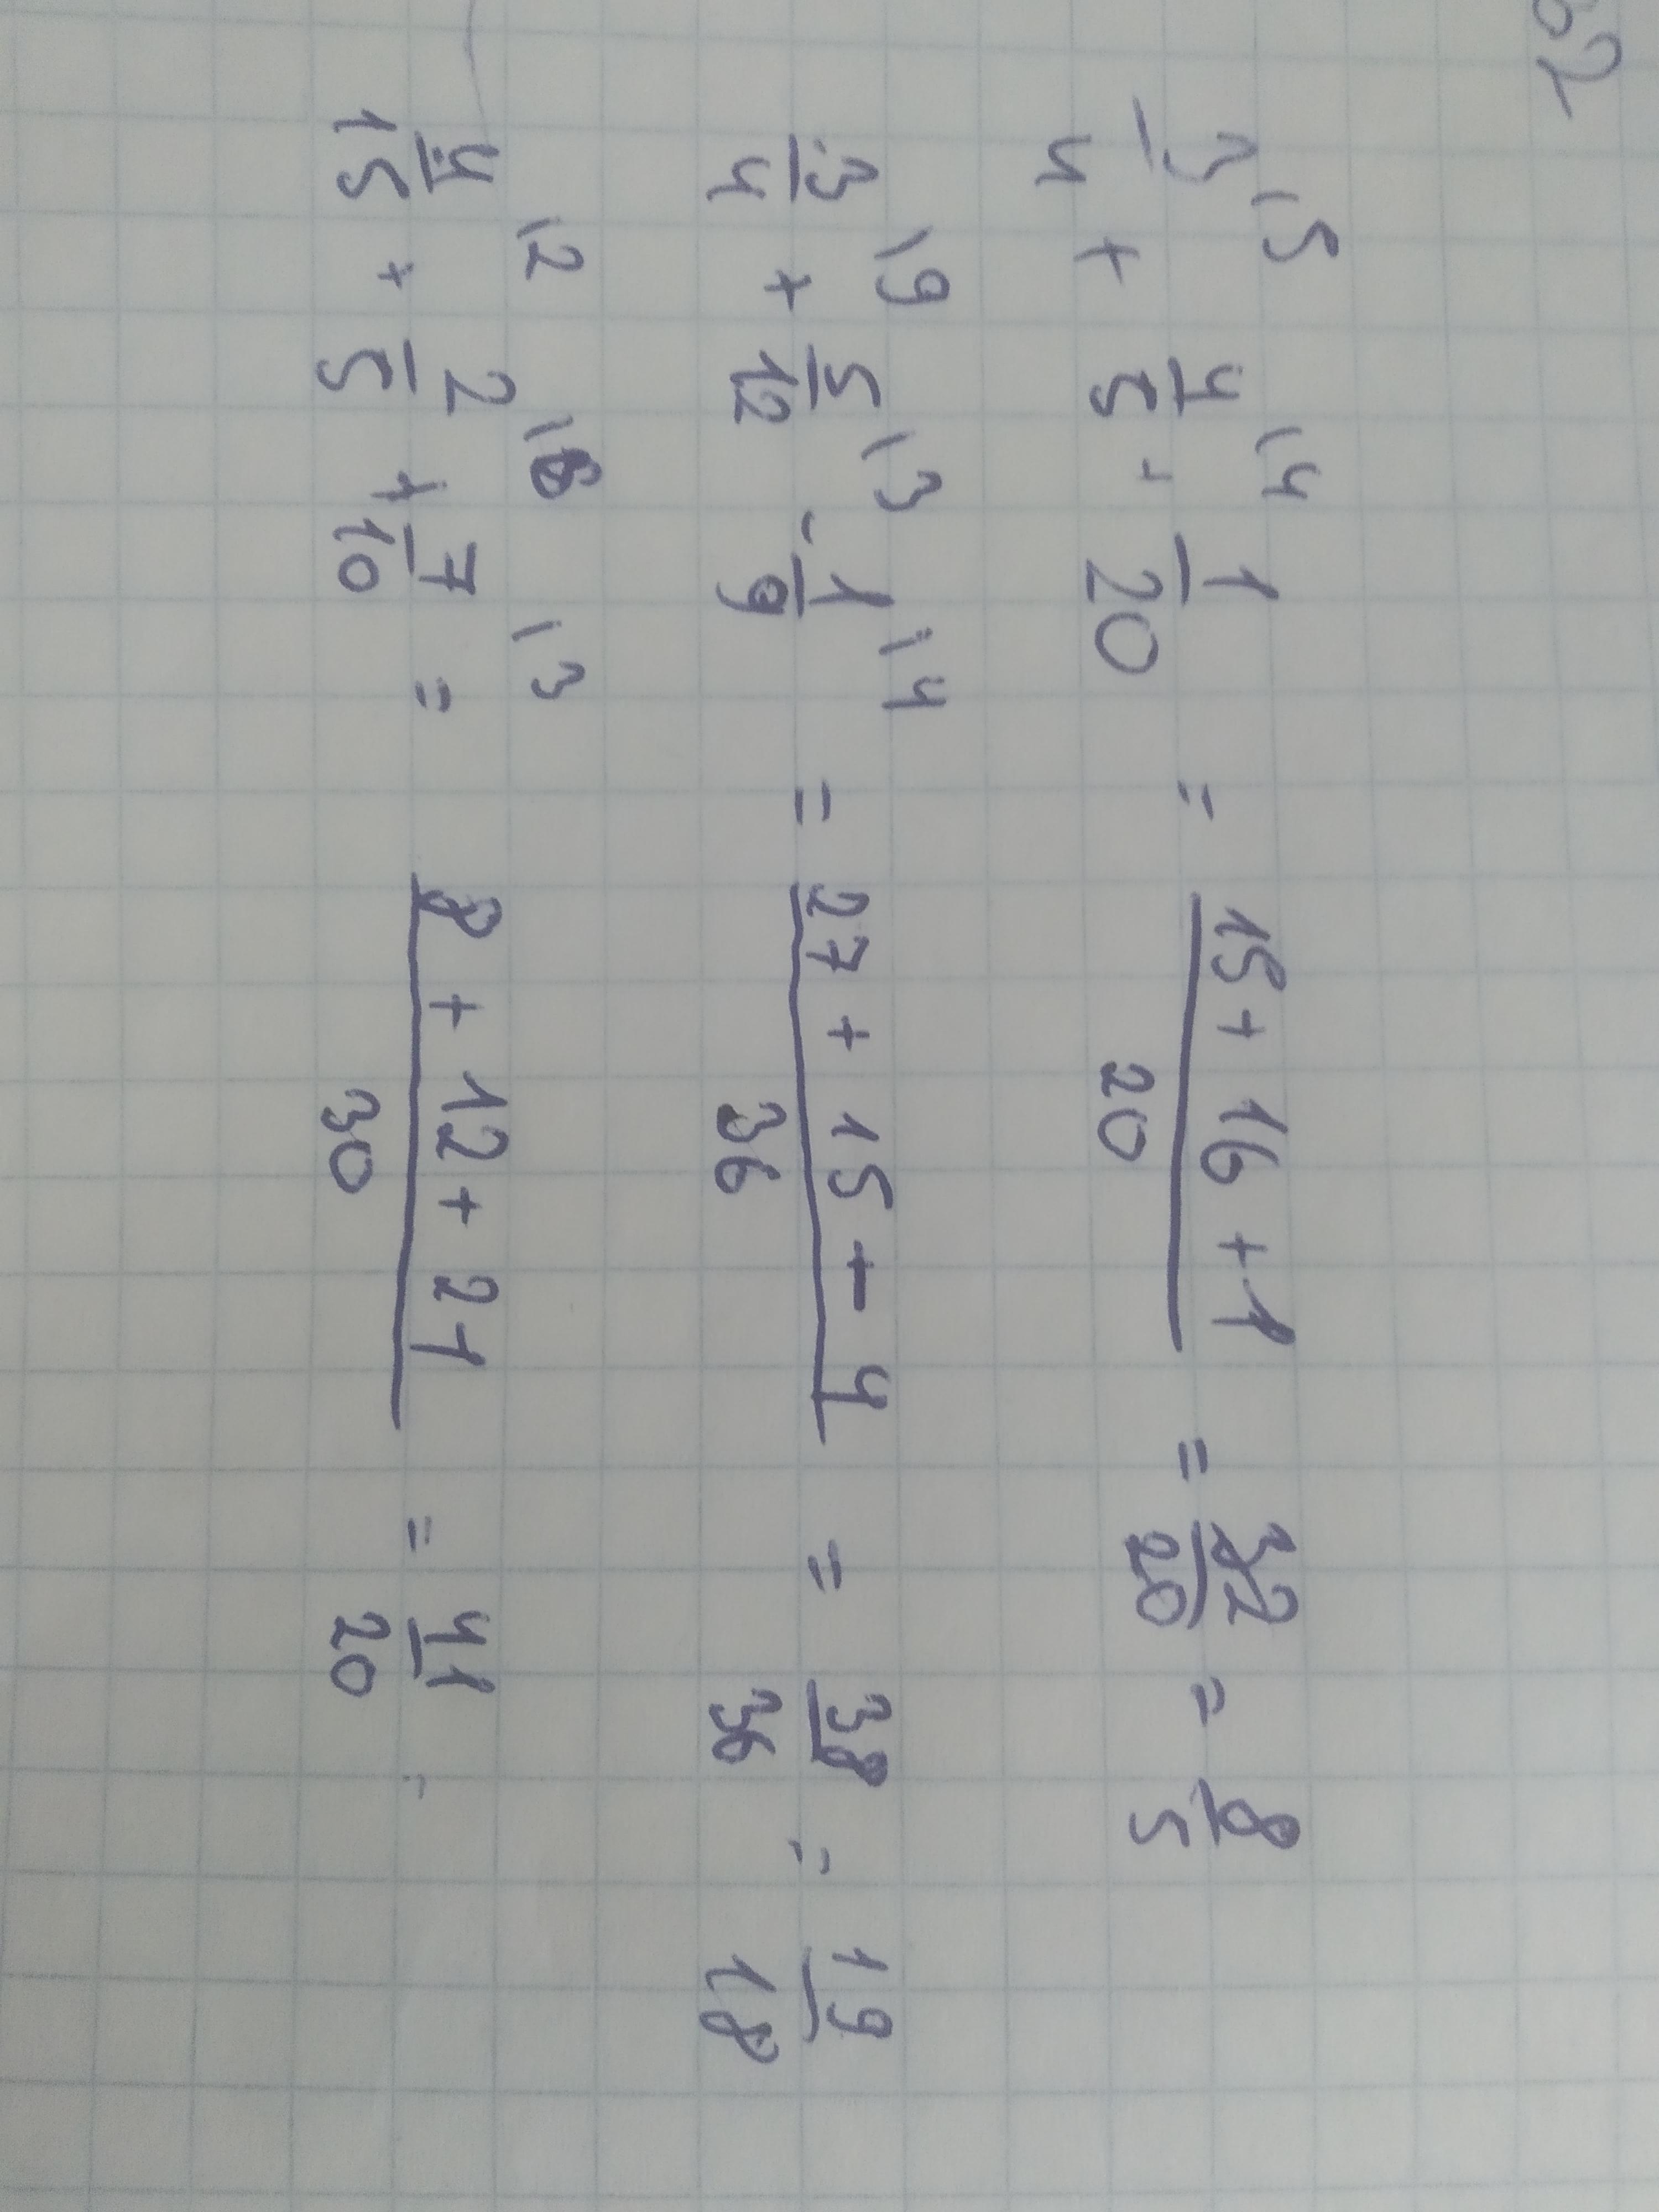 62
3/4 \5 + 4/5 \4 - 1/20 = (15 + 16 + 1)/20 = 32/20 = 8/5
3/4 \9 + 5/12 \3 - 1/9 \4 = (27 + 15 - 4)/36 = 38/36 = 19/18
4/15 \2 + 2/5 \6 + 7/10 \3 = (8 + 12 + 21)/30 = 41/20